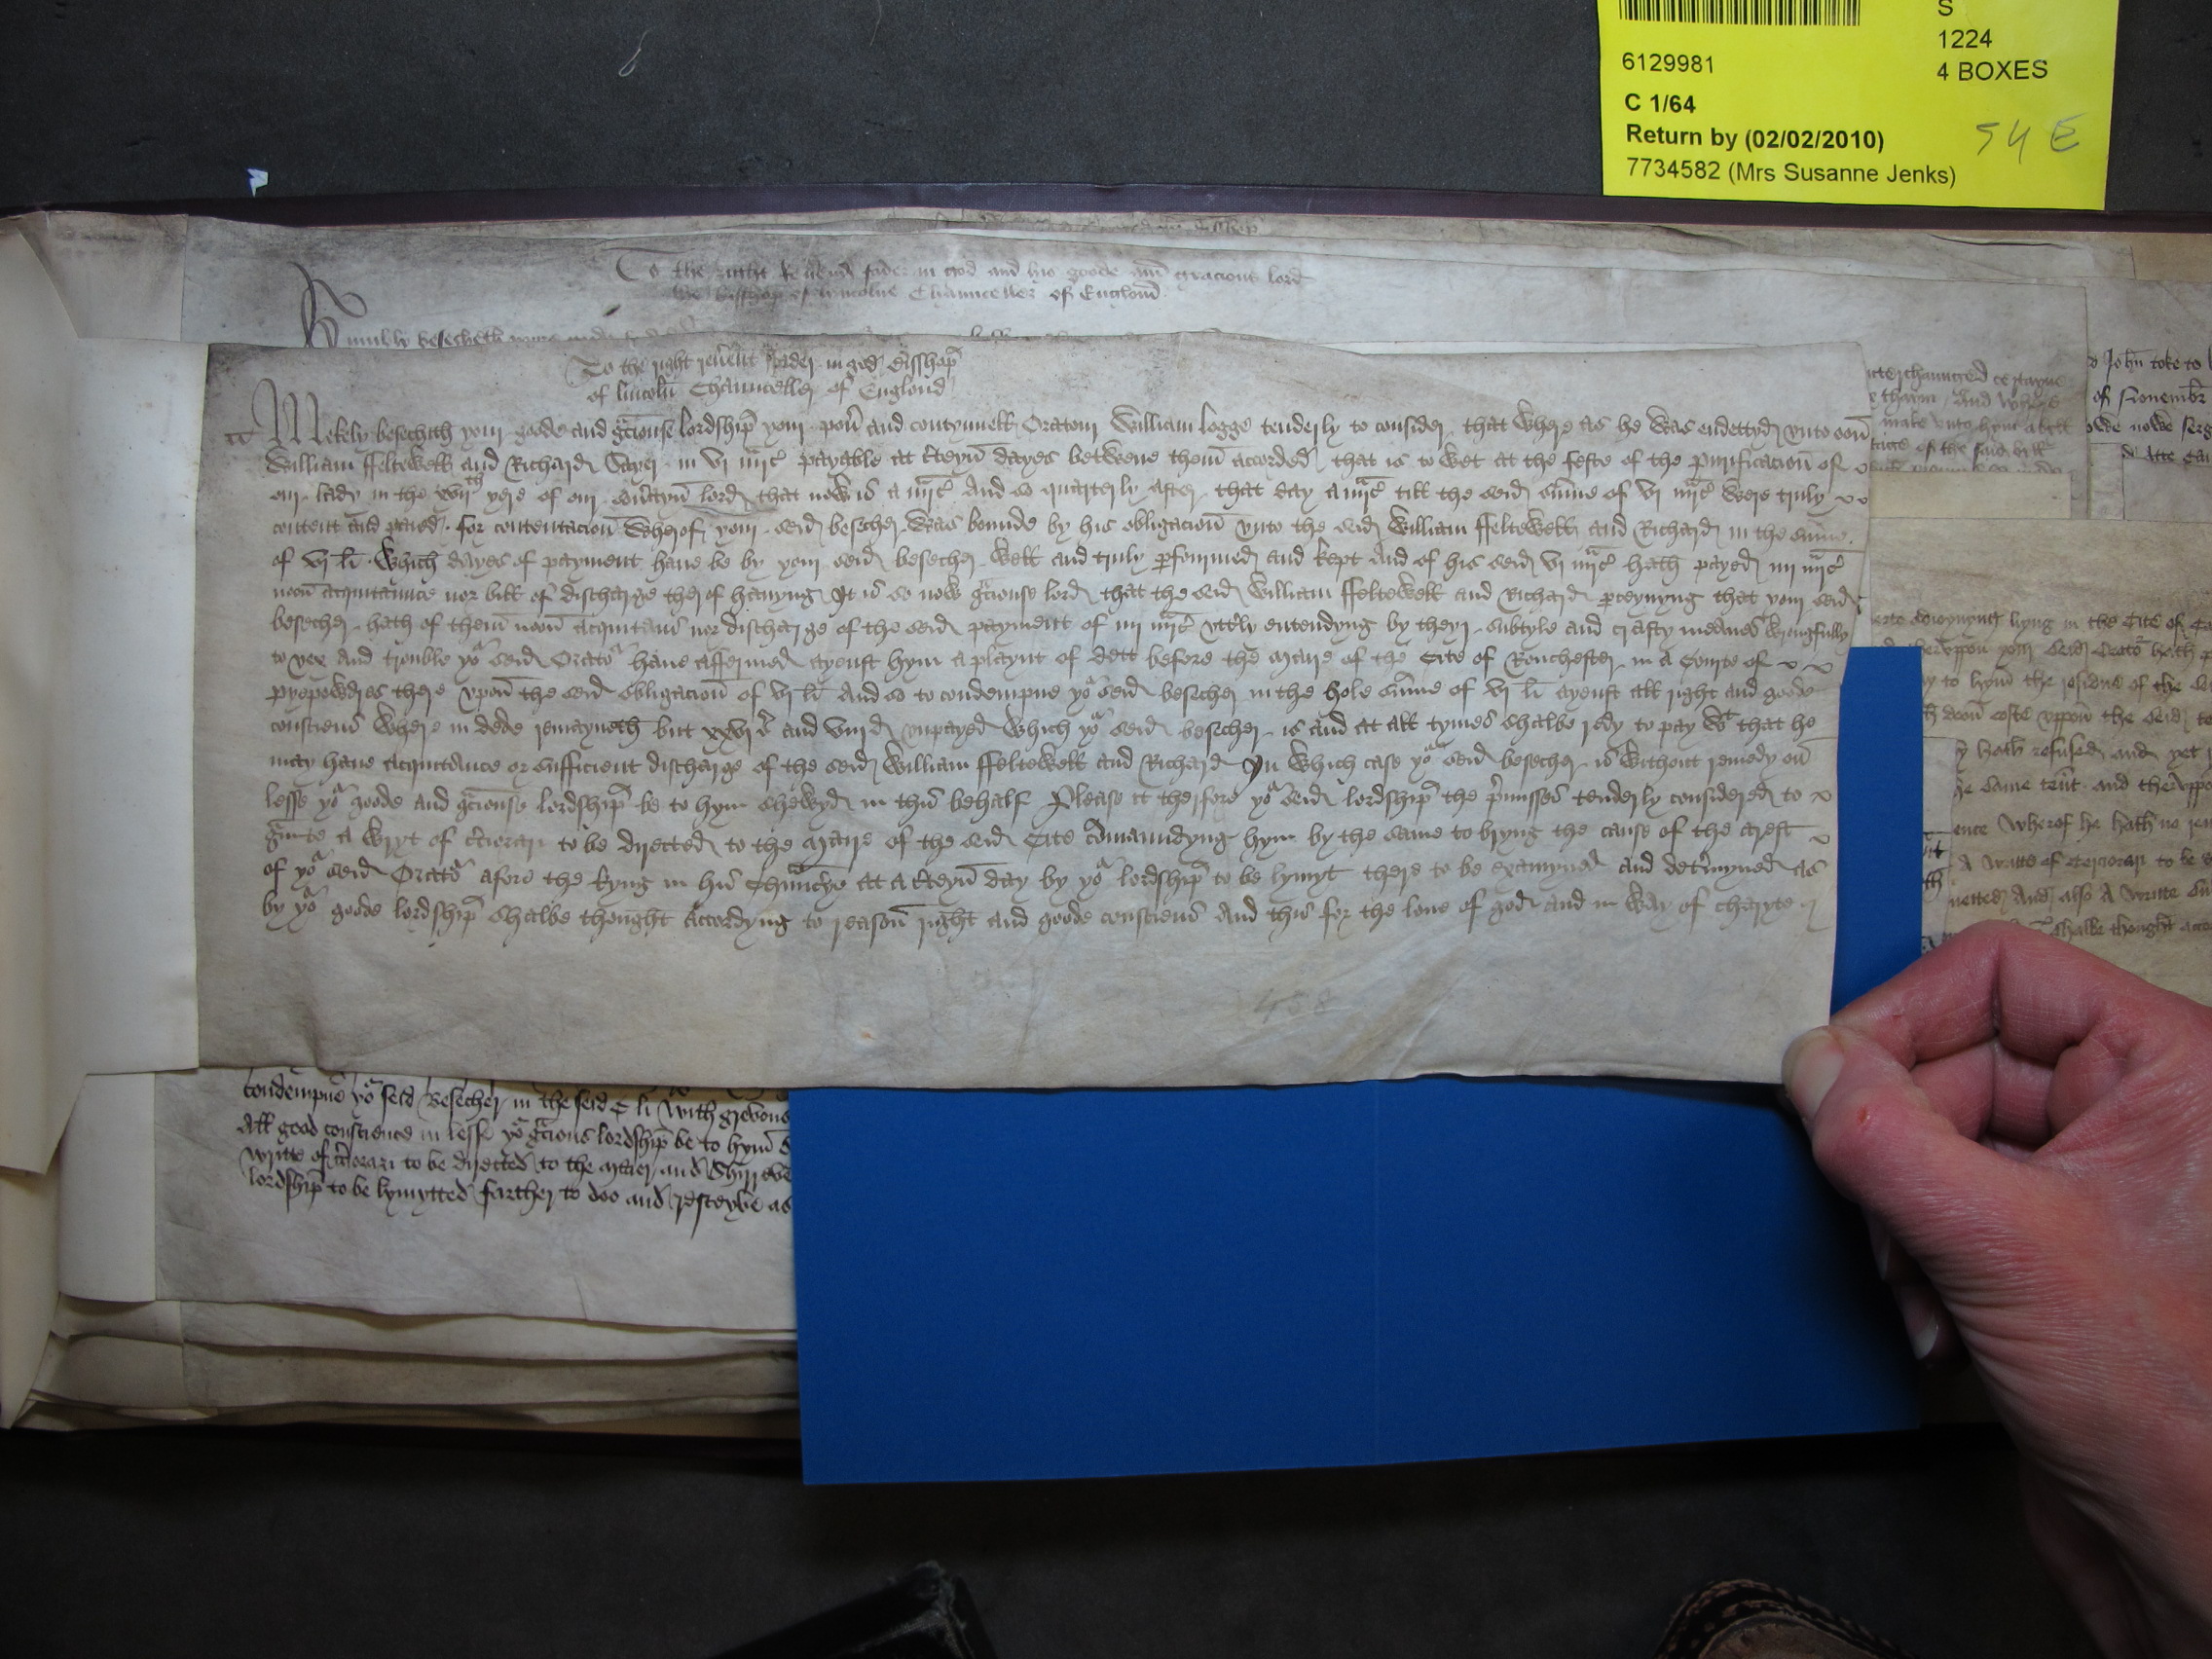 S
1224
6129981
4 BOXES
C 1/64
Return by (02/02/2010)
54 E
7734582 (Mrs Susanne Jenks)
To the right fader in god and his goode and gracious lord
the Bisshop of lincolne Chaunceller of Englond
Humbly besecheth
To the right reu'ent fader in god Bisshop
of lincoln Chaunceller of Englond
Mekely besechith your goode and gciouse lordship your pou' and contynuell Oratour William Logge tenderly to consider that where as he was endettyd vnto oon
William ffeltewell and Richard Sayer in vj mrc payable at cteyn dayes betwene them accorded that is to wet at the feste of the purificacion of
our lady in the yere of our sou'ayn lord that now is a mrc And so quarterly after that day a mrc till the seid sume of vj mrc were truly
content and paied for contentacion wherof your seid besecher was bounde by his obligacion vnto the seid William ffeltewell and Richard in the sume
of vj li which dayes of payment haue be by your seid besecher well and truly pfourmed and kept And of his seid vj mrc hath payed iiij mrc
noon acquitaunce nor bill of discharge therof hauyng It is so now gciouse lord that the seid William ffeltewell and Richard pceyuyng that your seid
besecher hath of them noon acquitans nor discharge of the seid payment of iiij mrc vtt'ly entendyng by theyr subtyle and crafty meanes wrongfully
to vex and trouble yor seid Orator haue affermed ayenst hym a playnt of dett before the Maire of the Cite of Rouchester in a Courte of
pyepowdres there vpon the seid obligacion of vj li And so to condempne yor seid besecher in the hole sume of vj li ayenst all right and goode
consciens where in dede remayneth but xxvj s and viij d vnpayed which yor seid besecher is and at all tymes shalbe redy to pay wt that he
may haue acquitaunce or sufficient discharge of the seid William ffeltewell and Richard In which case yor seid besecher is without remedy on
lesse yor goode and gciouse lordship be to hym shewyd in this behalf Please it therfore yor seid lordship the p'misses tenderly considered to
g'unte a wryt of c'ciorari to be directed to the Maire of the seid Cite comaundyng hym by the same to bryng the cause of the arest
of yor seid Orator afore the kyng in his Chauncrye at a cteyn day by yor lordship to be lymyt there to be examyned and det'myned as
by yor goode lordship shalbe thought accordyng to reason right and goode consciens And this for the loue of god and in way of charyte
458
condempne yor seid Besecher in the seid C li with grevous
All good conscience in lesse yor gcious lordship be to hym
writte of c'ciorari to be directed to the Maier and Shireve
lordship to be lymytted farther to doo and resceyve as
John toke to
of Nouembr
owe nowe
and where
make vnto hym a bill
of the said bill
lyng in the Cite of
vppon the seid
hath refused and yet
the same and thervppo
ence wherof he hath no
A writte of c'ciorari to be
And also A writte
shalbe thought